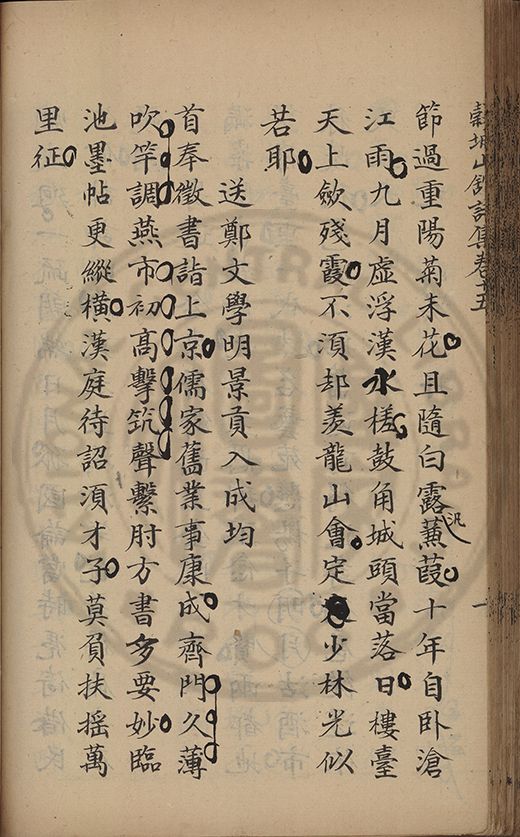 山詩集卷十五
一
節過重陽菊未花且隨白露汎蒹葭十年自卧滄
江雨九月虛浮漢水槎鼓角城頭當落日樓臺
天上歛殘霞不湏却羨龍山會定少林光似
若耶
送鄭文學明景貢入成均
首奉徵書詣上京儒家舊業事康成齊門久薄
吹竽調燕市初高擊筑聲繫肘方書多要妙臨
池墨帖更縱橫漢庭待詔湏才子莫負扶搖萬
里征